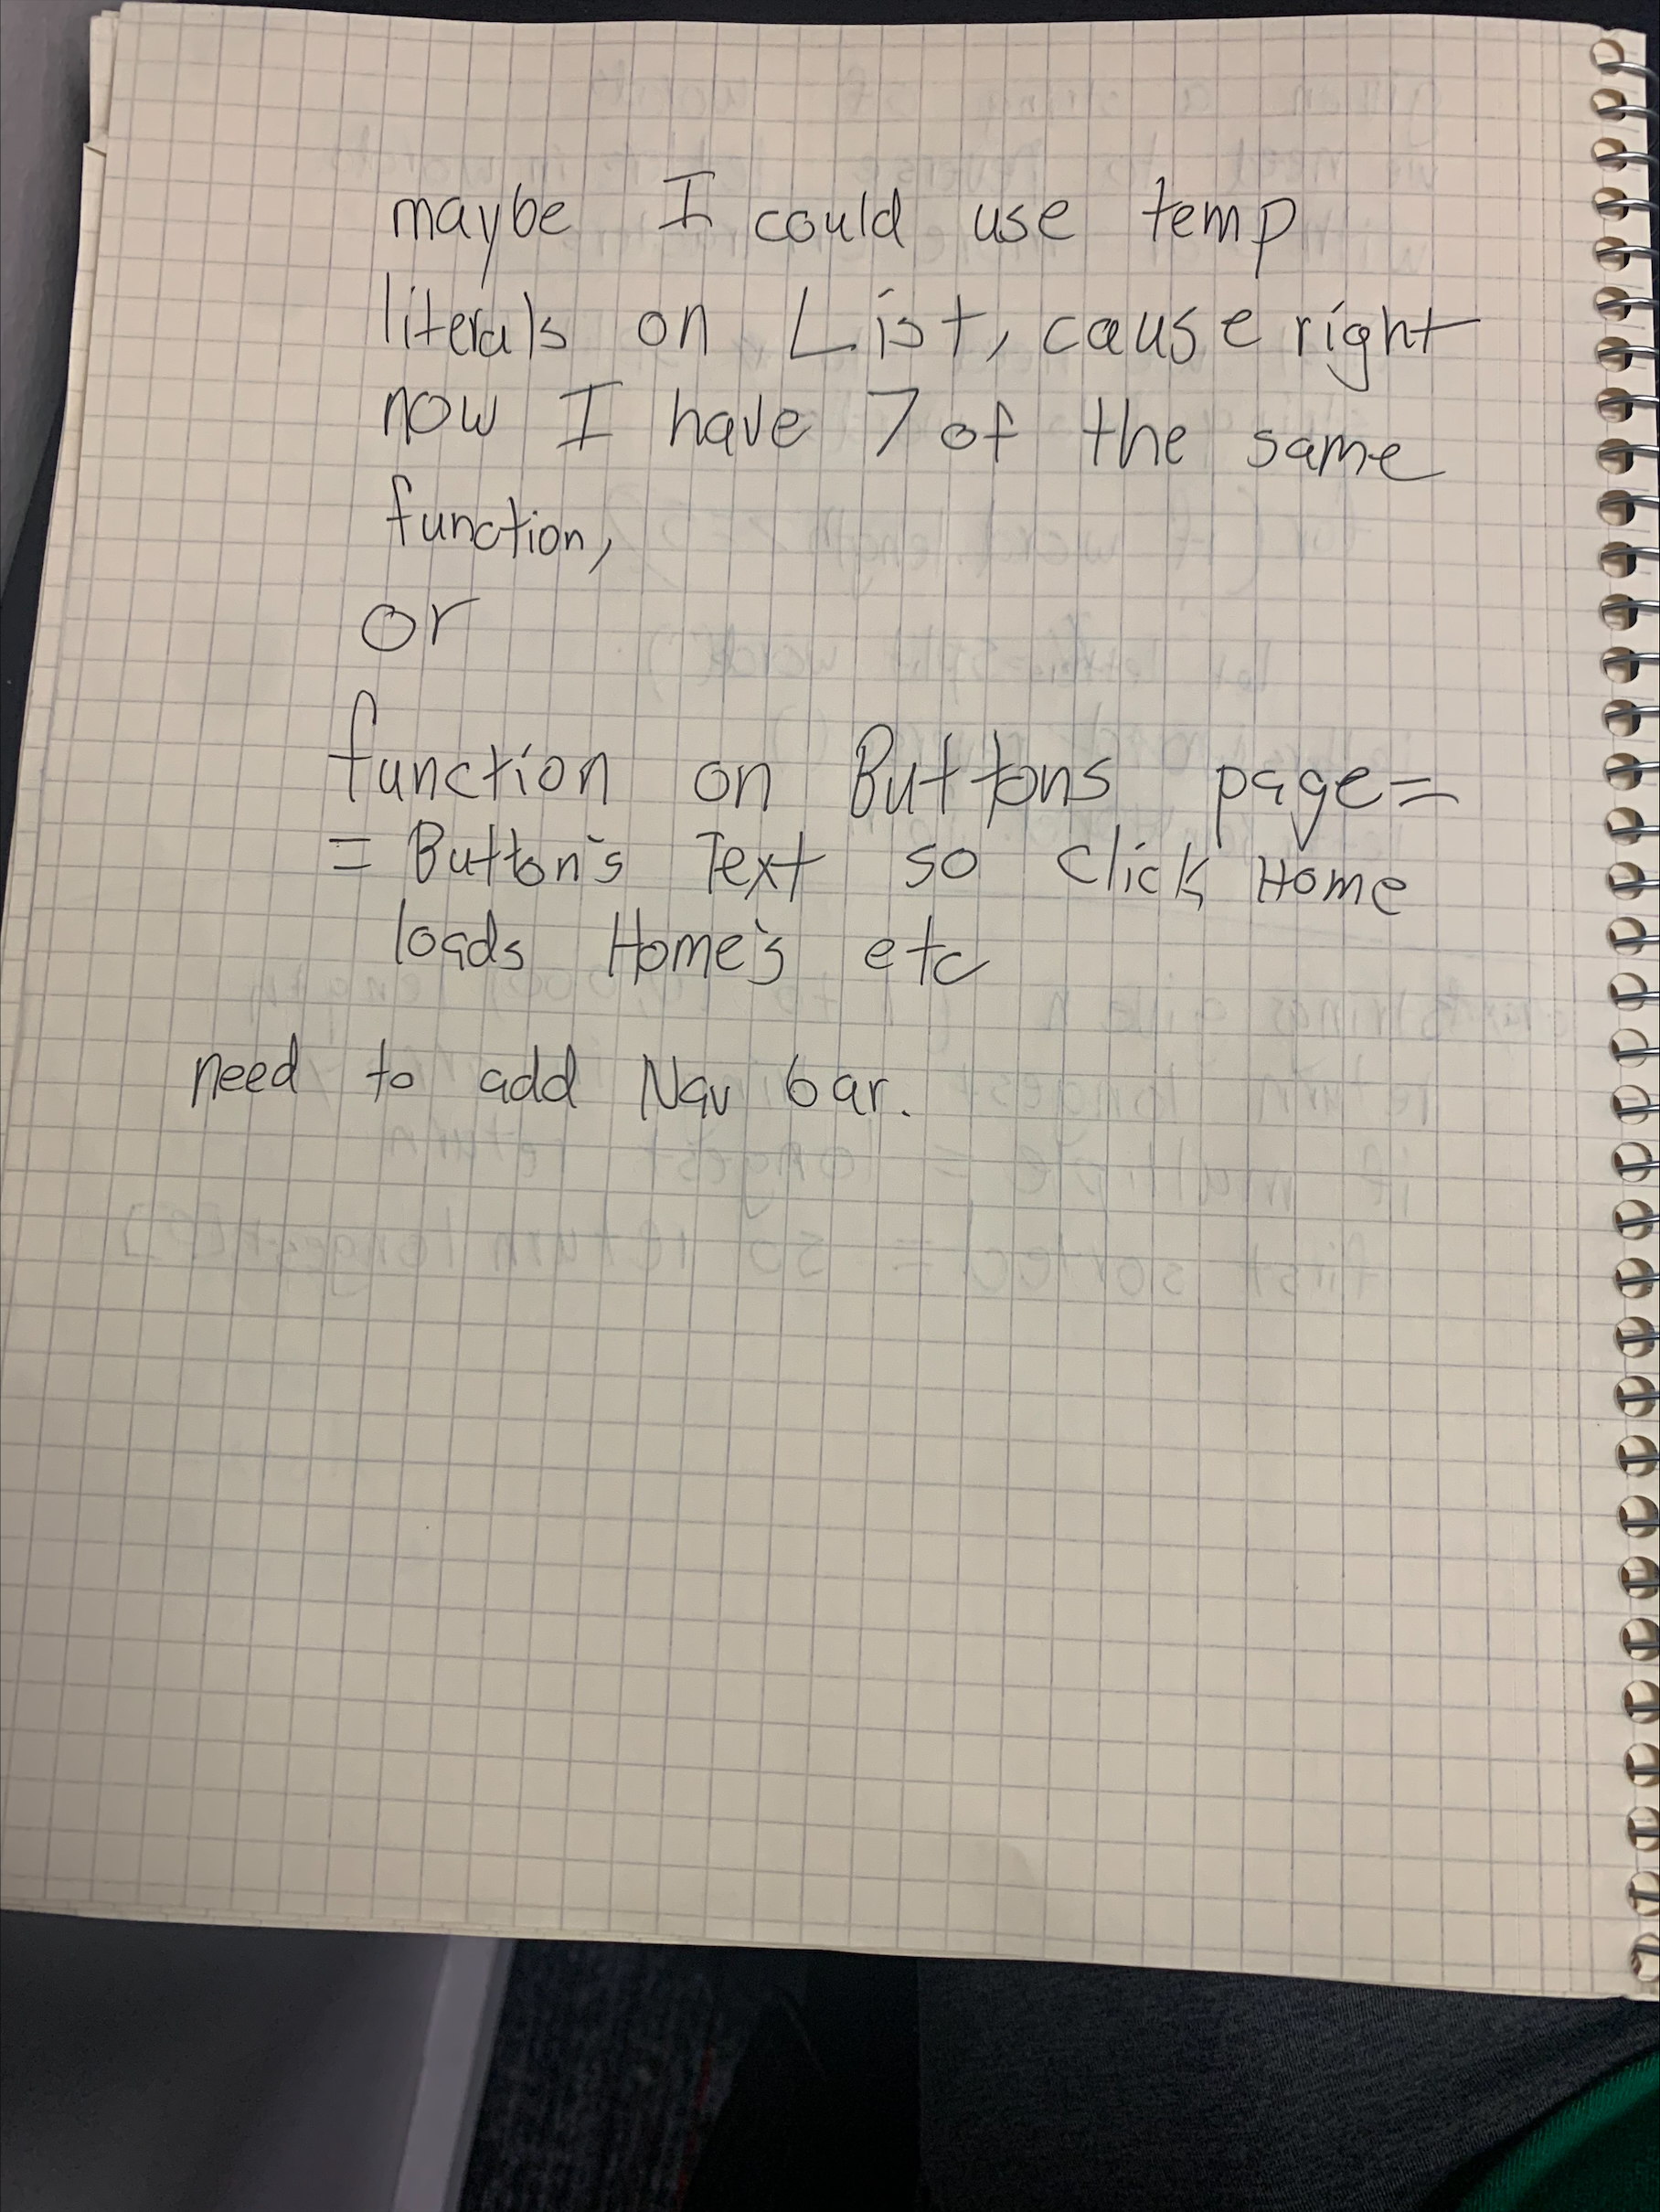 maybe I could use temp
literals on List, cause right
now I have 7 of the same
function,
or
function on Buttons page=
= Button's Text so click Home
loads Home's etc
need to add Nav bar.